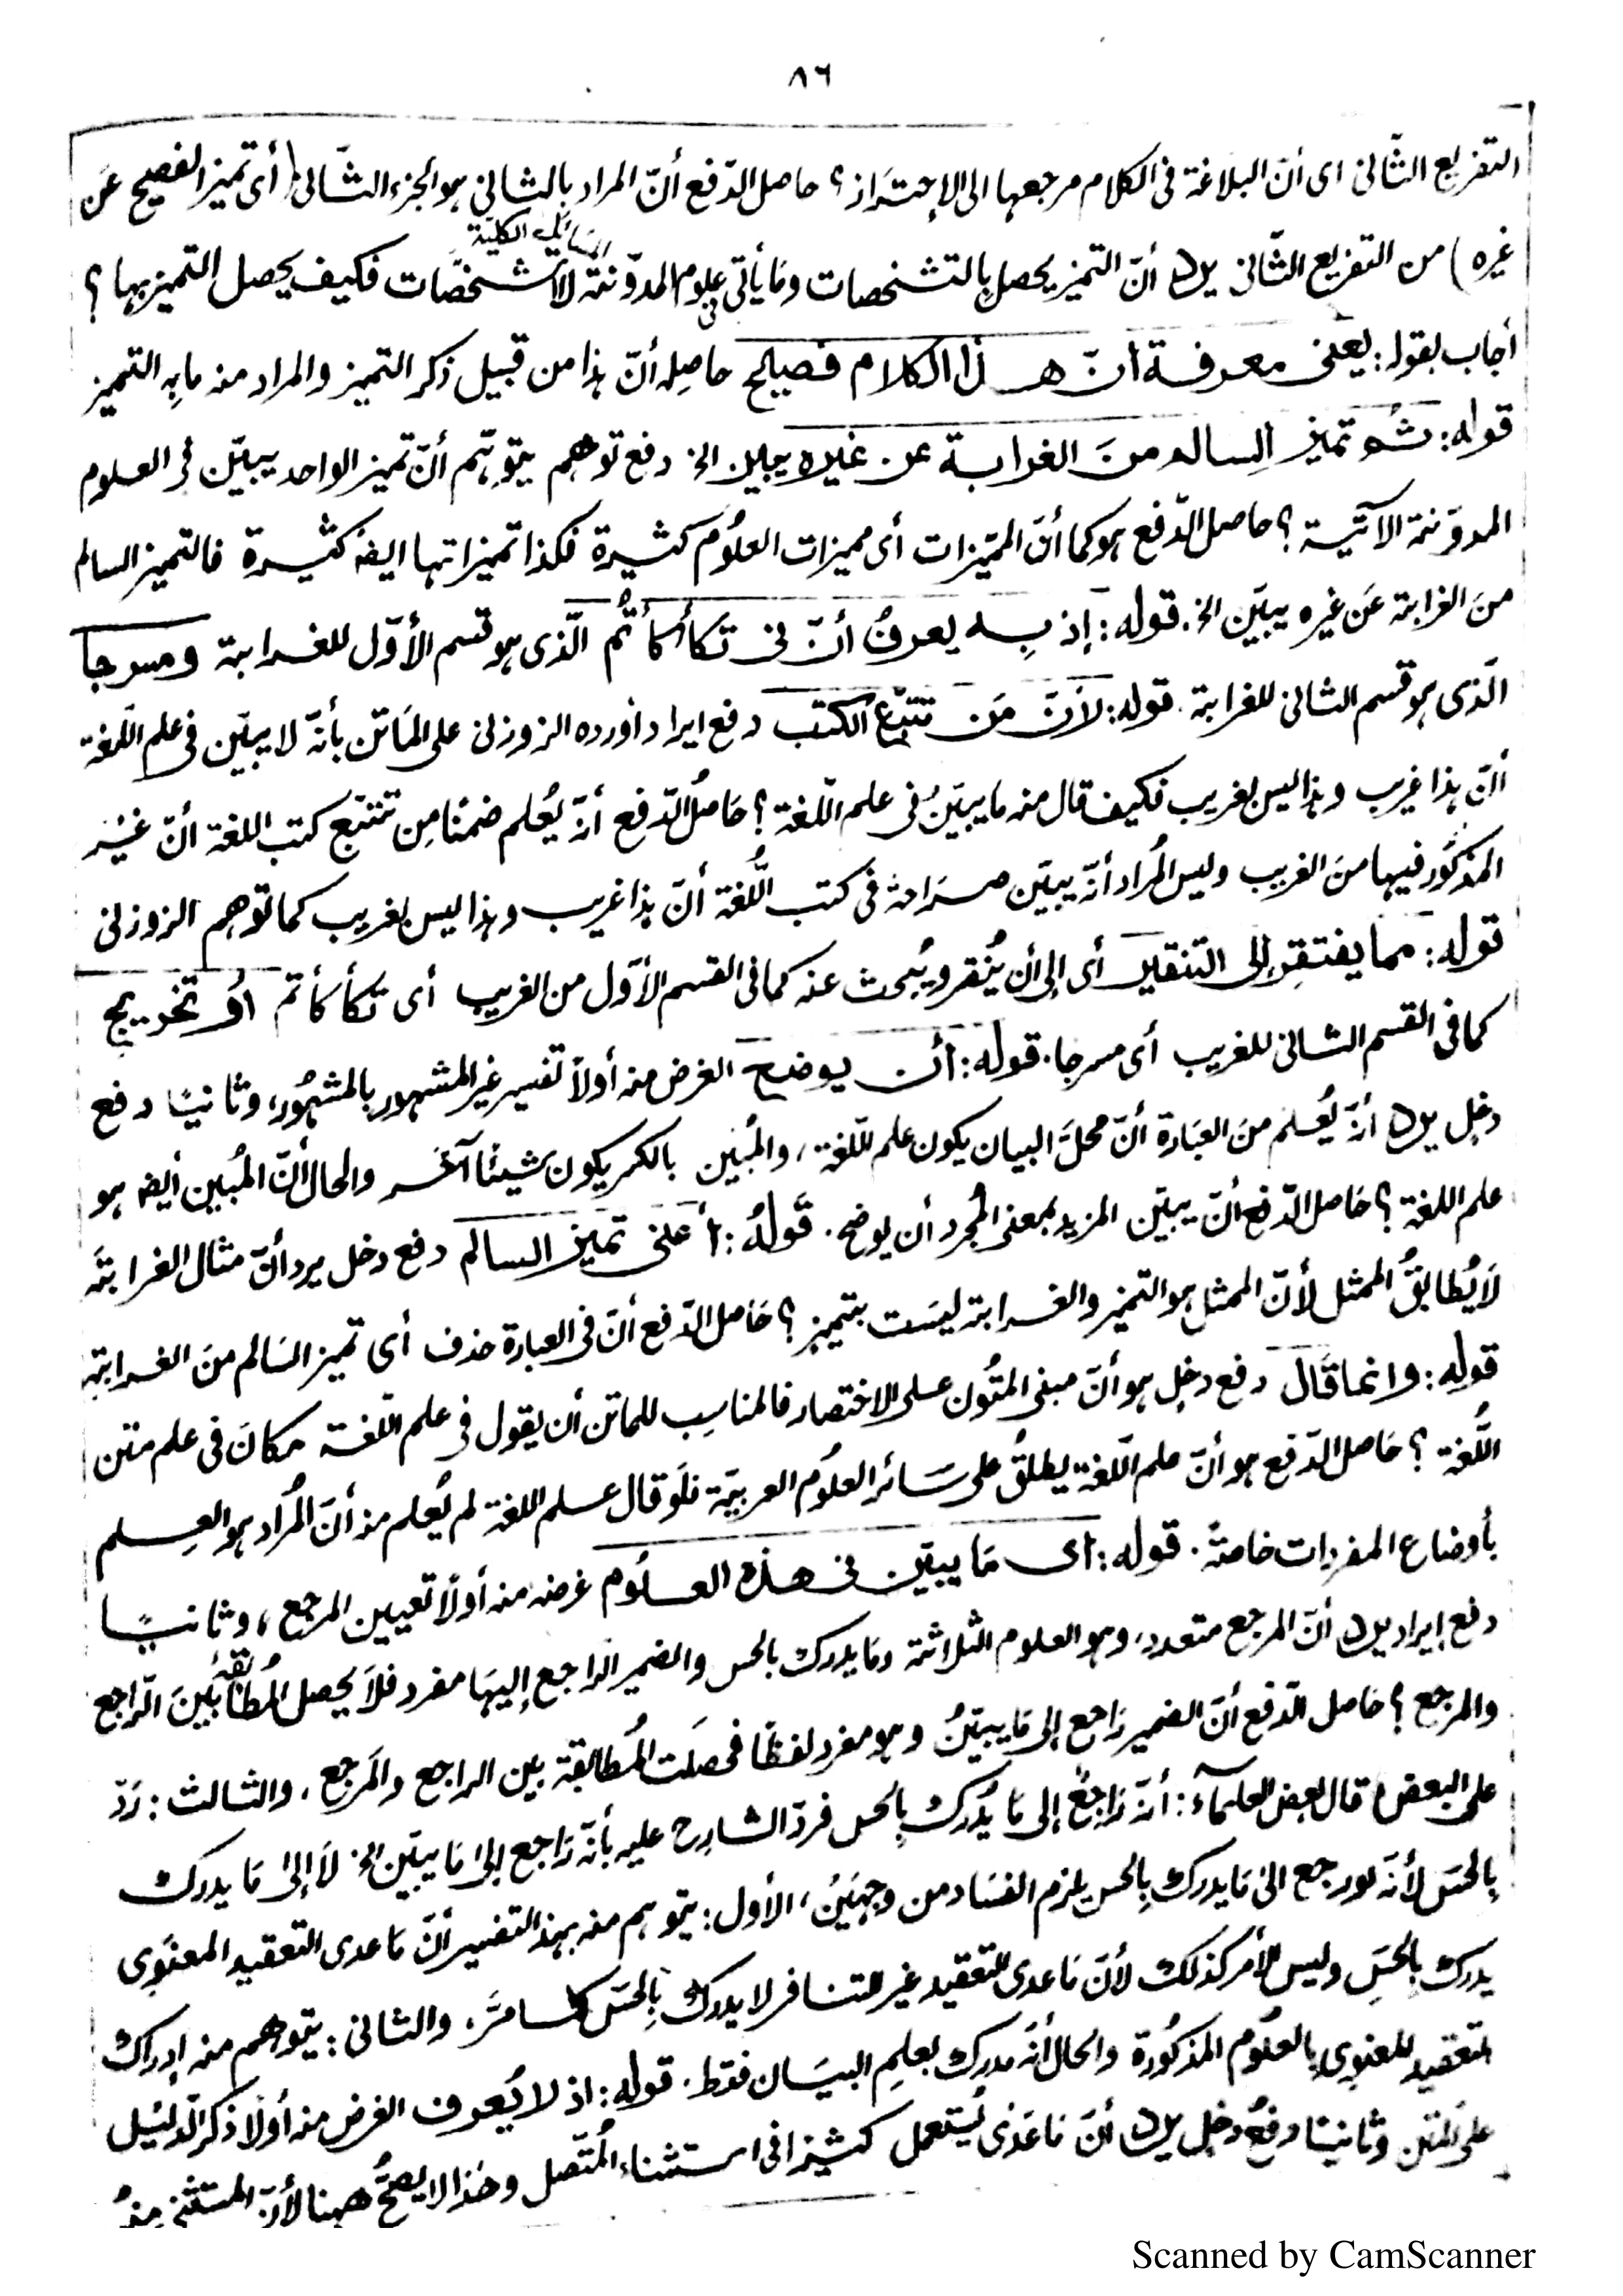 ٨٦
التفريع الثّانى اى أنّ البلاغة فى الكلام مرجعها الى الإحتَراز؟ حاصل الدّفع أنّ المراد بالثانى هو الجزء الثّانى (أى تميز الفصيح عَن
غيره) من التفريع الثّانى يرد أنّ التميز يحصل بالتشخصات وما يأتى فى علوم المدوّنة المسائل الكليّة لا تشخصّات فكيف يحصل التميز بها؟
أجاب بقوله: يعنى معرفة أنّ هذا الكلام فصيح حاصله أنّ هذا من قبيل ذكر التميز والمراد منه ما به التميز
قوله: ثم تميز السالم منَ الغرابة عن غيره يبين الخ دفع توهم يتوهّم أنّ تميز الواحد يبيّن فى العلوم
المدوّنة الآتية؟ حاصل الدّفع هو كما أنّ المميّزات أى مميزات العلُوم كثيرة فكذا تميزاتها ايضًا كثيرة فالتميز السالم
منَ الغرابة عَن غيره يبيّن الخ. قوله: إذ بِه يعرفُ أنّ فى تكأكأتُم الّذى هو قسم الأوّل للغرابة ومسرجا
الّذى هو قسم الثانى للغرابة. قوله: لأنّ مَن تتبّع الكتب دفع ايراد أورده الزوزنى على المَاتن بأنّه لا يبيّن فى علم اللّغة
أنّ هذا غريب وهذا ليس بغريب فكيف قال منه ما يبيّنُ فى علم اللّغة؟ حَاصلُ الدّفع أنّه يُعلم ضمنًا مِن تتبّع كتب اللغة أنّ غيْر
المذكُور فيها منَ الغريب وليس المُراد أنّه يبيّن صرَاحة فى كتب اللُّغة أنّ هذا غريب وهذا ليس بغريب كما توهم الزوزنى
قوله: مما يفتقر الى التنقير أى إلى أن يُنقر ويُبحث عنه كما فى القسم الأوّل من الغريب أى تكأكأتم أو تخريج
كما فى القسم الثانى للغريب أى مسرجا. قوله: أن يوضح الغرض منه أولاً تفسير غير المشهور بالمشهُور، وثانيًا دفع
دخل يرد أنّه يُعلم منَ العبَارة أنّ محلَّ البيان يكون علم اللّغة، والمُبيِن بالكسر يكون شيئًا آخَر والحال أنّ المُبين أيضا هو
علم اللغة؟ حَاصل الدّفع أنّ يبيّن المزيد بمعنى المُجرد أن يوضح. قَولهُ: أعنى تميز السالم دفع دخل يرد أنّ مثال الغرابَة
لَا يُطابقُ الممثل لأنّ الممثل هو التميز والغرابة ليسَت بتميز؟ حَاصل الدّفع أنّ فى العبارة حذف أى تميز السَالم منَ الغرابة
قوله: وانما قَال دفع دخلٍ هو أنّ مبنى المتُون على الاختصار فالمناسِب للماتن أن يقول فى علم اللّغة مكانَ فى علم متن
اللُّغة؟ حَاصل الدّفع هو أنّ علم اللّغة يطلقُ على سَائر العلُوم العربيّة فلَو قال علم اللغة لم يُعلم منه أنّ المُراد هو العِلم
بأوضاع المفردات خاصةً. قوله: اى مَا يبيّن فى هذه العلُوم غرضه منه أولًا تعيين المرجع، وثانيًا
دفع إيراد يرد أنّ المرجع متعدد، وهو العلوم الثلاثة ومَا يدرك بالحس والضمير الراجع إليهَا مفرد فلَا يحصل المُطابقة بَينَ الرّاجع
والمرجع؟ حَاصل الدّفع أنّ الضمير رَاجع إلى مَا يبيّنُ وهو مفرد لفظًا فحصلَت المُطابقة بين الراجع والمَرجع. والثالث: رَدّ
على البعض قال بعض العلمآء: أنّه رَاجعٌ إلى مَا يُدرَك بِالحس فردّ الشارح عليه بأنّه رَاجع إلى مَا يبيّن الخ لَا إلىٰ مَا يدرك
بِالحسّ لأنّه لو رجع الىٰ مَا يدرك بِالحس يلزم الفسَاد من وجهَيْن، الأول: يتوهم منه بهذ التفسير أنّ مَا عدى التعقيد المعنوى
يدرك بِالحسّ وليس الأمر كذلك لأنّ مَا عدى التعقيد غير التنافر لا يدرك بِالحسّ كما مرَّ. والثانى: يتوهم منه إدراك
التعقيد المعنوى بِالعلُوم المذكُورة والحال أنّه مدرك بعلمِ البيَان فقط. قوله: اذ لا يُعرف الغرض منه أولًا ذكر الدّليْل
على المتن وثانيًا دفعُ دخل يرد أنّ مَا عَدٰى يُستعمل كثيرًا فى استثناء المُتّصل وهٰذا لا يصحُّ ههنا لأنّ المستثنٰى منهُ
Scanned by CamScanner